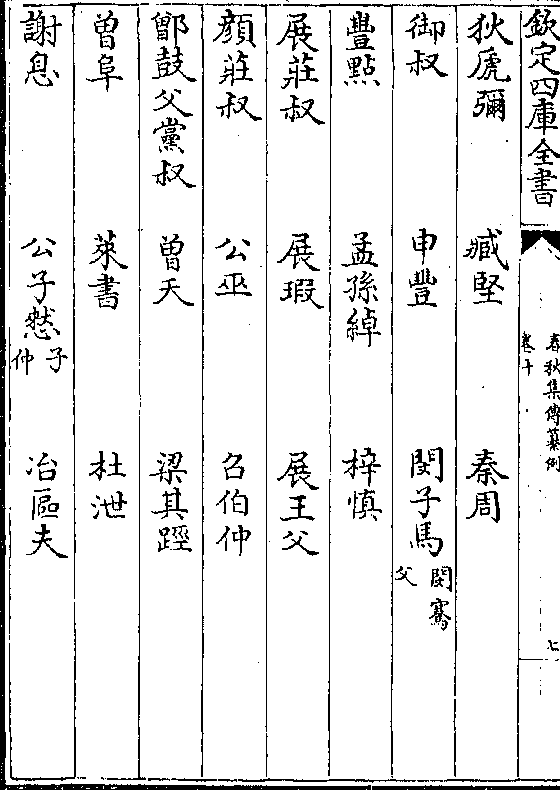 欽定四庫全書
春秋集傳纂例
卷十
七
狄虒彌 臧堅 秦周
御叔 申豐 閔子馬閔騫父
豐點 孟孫綽 梓慎
展莊叔 展瑕 展王父
顏莊叔 公巫 召伯仲
鄫鼓父黨叔 曽夭 梁其踁
曽阜 萊書 杜泄
謝息 公子憖子仲 冶區夫